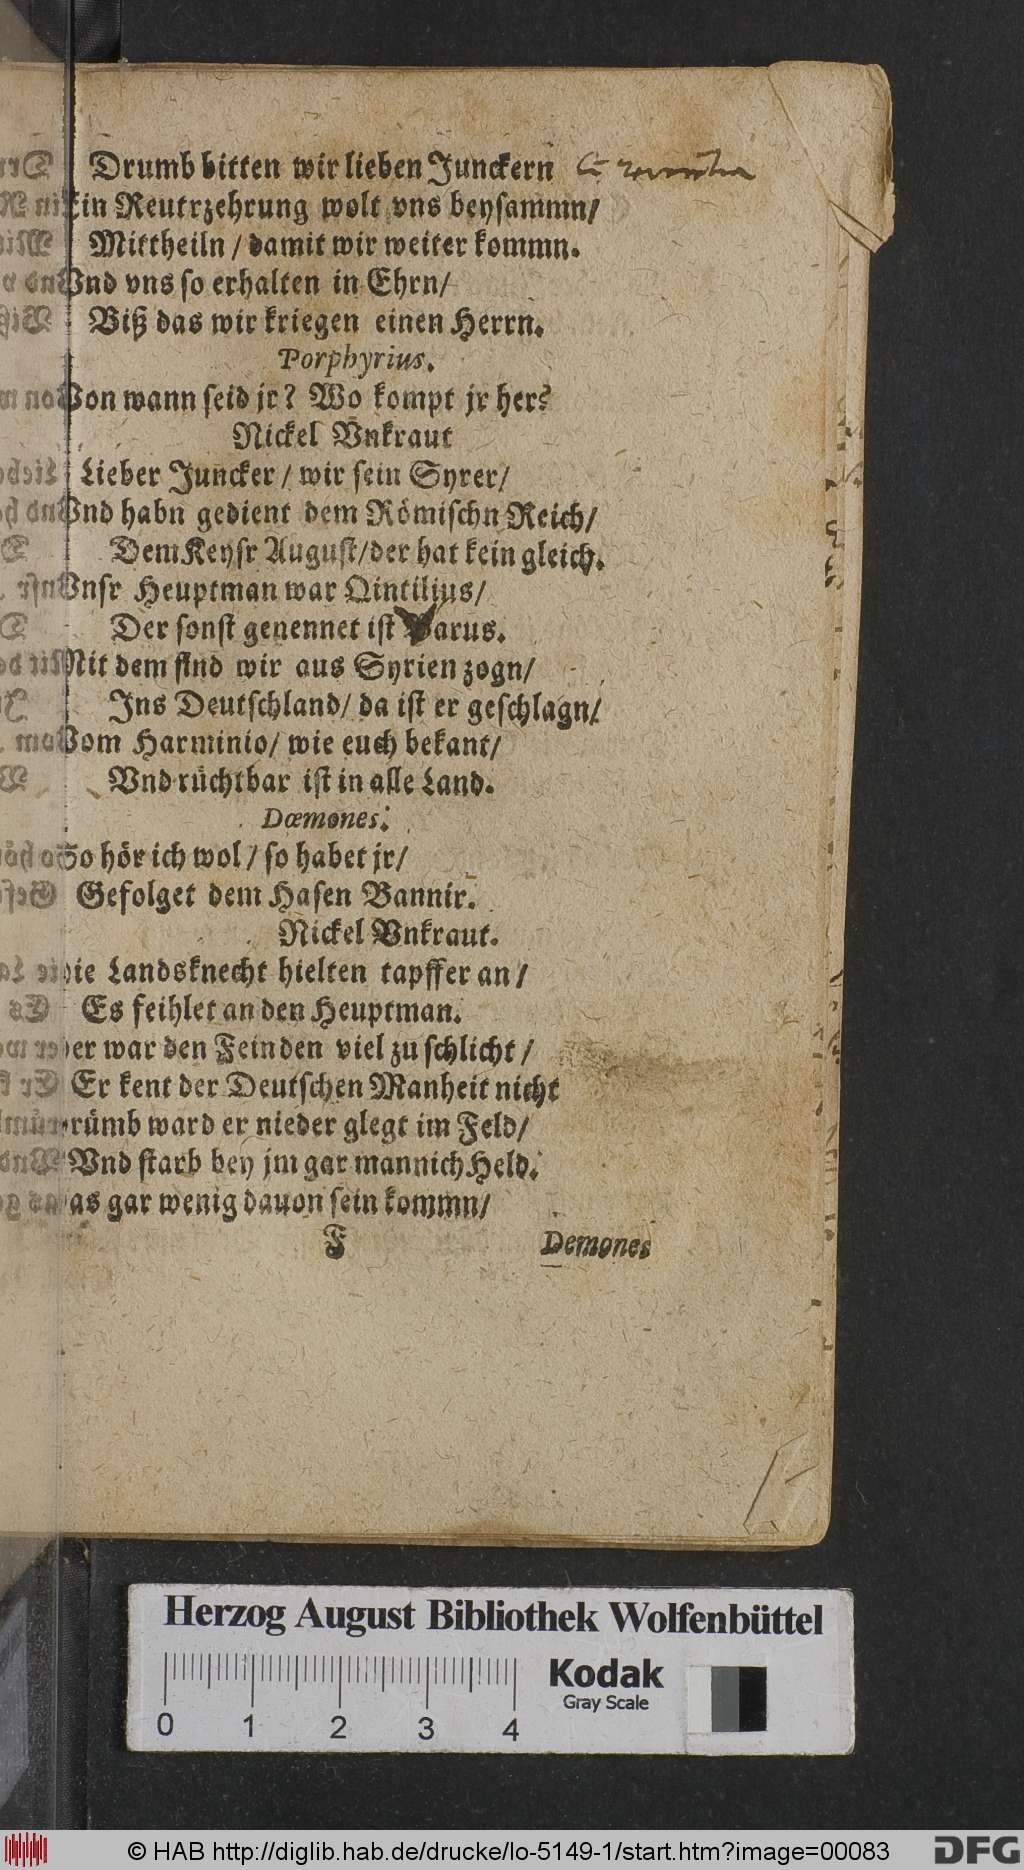 Drumb bitten wir lieben Junckern
Ein Reutrzehrung wolt vns beysammn/
Mittheiln / damit wir weiter kommn.
Vnd vns so erhalten in Ehrn/
Biß das wir kriegen einen Herrn.
Porphyrius.
Von wann seid jr? Wo kompt jr her?
Nickel Vnkraut
Lieber Juncker / wir sein Syrer/
Vnd habn gedient dem Römischn Reich/
Dem Keysr August/der hat kein gleich.
Vnsr Heuptman war Qintilius/
Der sonst genennet ist Varus.
Mit dem sind wir aus Syrien zogn/
Ins Deutschland/ da ist er geschlagn/
Vom Harminio/ wie euch bekant/
Vnd rüchtbar ist in alle Land.
Dœmones.
So hör ich wol / so habet jr/
Gefolget dem Hasen Bannir.
Nickel Vnkraut.
Die Landsknecht hielten tapffer an/
Es feihlet an den Heuptman.
Der war den Feinden viel zu schlicht /
Er kent der Deutschen Manheit nicht
Drümb ward er nieder glegt im Feld/
Vnd starb bey jm gar mannich Held.
Das gar wenig dauon sein kommn/
F Demones
Herzog August Bibliothek Wolfenbüttel
Kodak
Gray Scale
0 1 2 3 4
© HAB http://diglib.hab.de/drucke/lo-5149-1/start.htm?image=00083
DFG